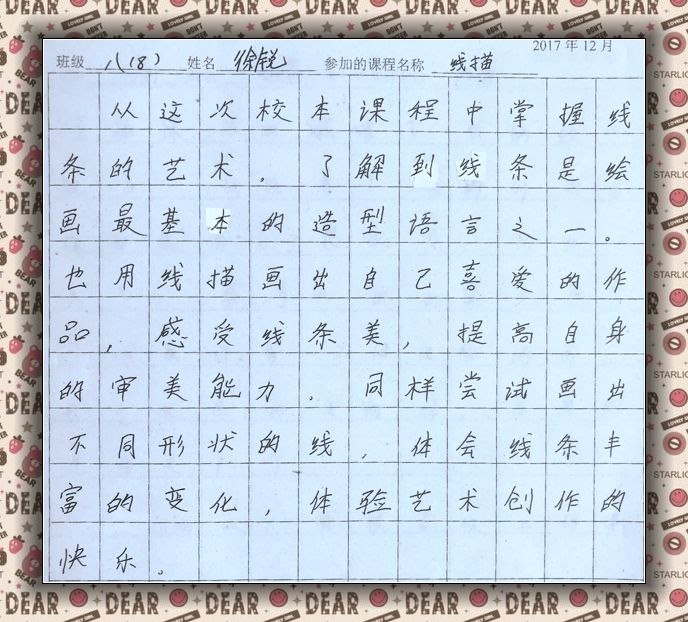 2017 年 12 月
班级 八(8) 姓名 徐锐 参加的课程名称 线描
从这次校本课程中掌握线
条的艺术，了解到线条是绘
画最基本的造型语言之一。
也用线描画出自己喜爱的作
品，感受线条美，提高自身
的审美能力，同样尝试画出
不同形状的线，体会线条丰
富的变化，体验艺术创作的
快乐。